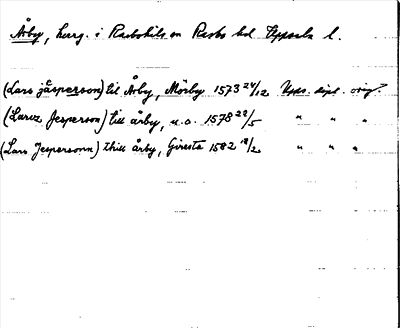 Årby, herrg. i Rasbokils sn Rasbo hd Uppsala l.
(Lars jäsperson) til Årby, Mörby 1573 24/12 Upps. dipl. orig.
(Laruz Jesperson) till årby, u.o. 1578 22/5 " " "
(Lars Jespersonn) thiil årby, Giresta 1582 18/2 " " "